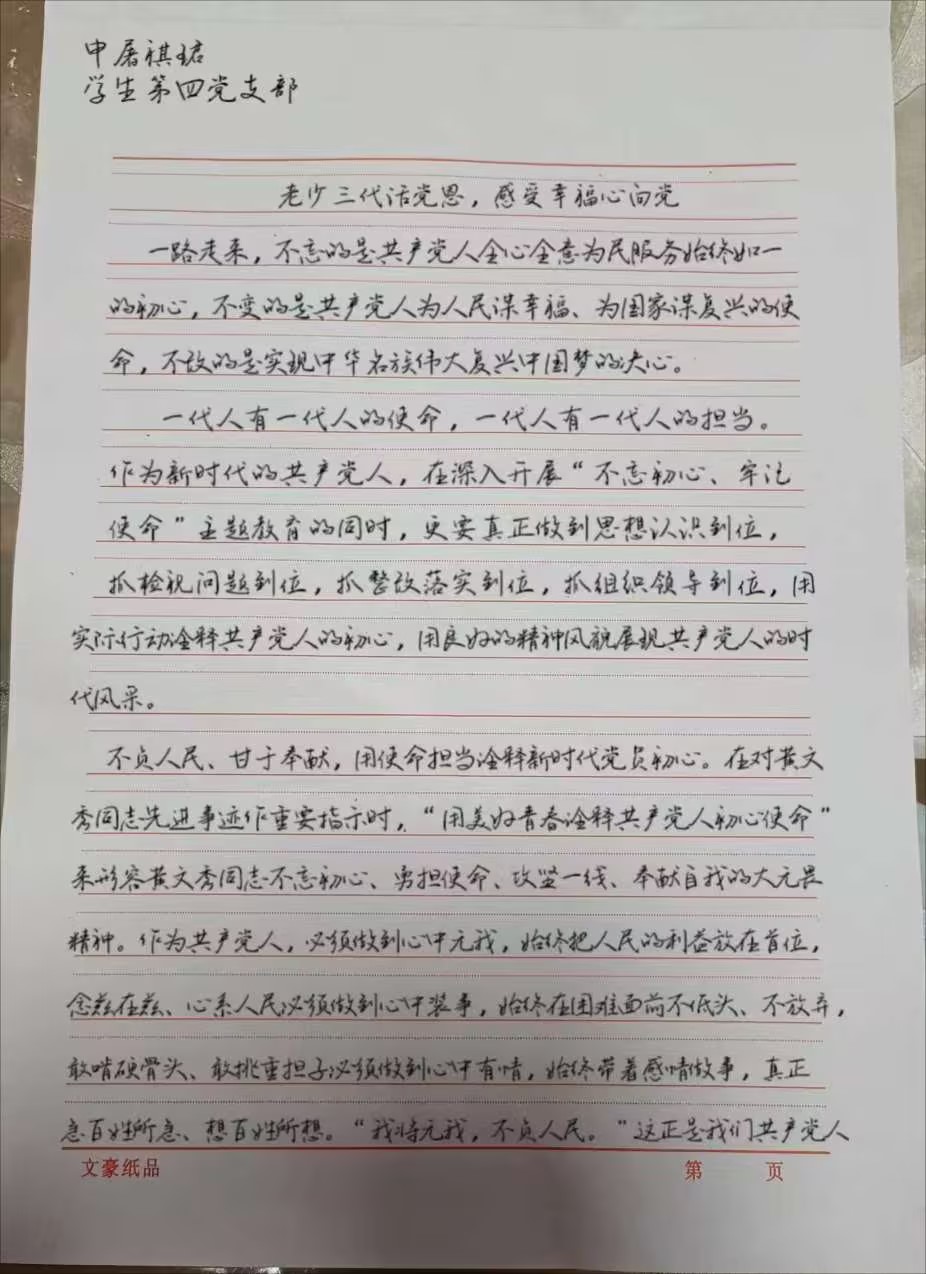 申屠祺珺
学生第四党支部
老少三代话党恩，感受幸福心向党
一路走来，不忘的是共产党人全心全意为民服务始终如一
的初心，不变的是共产党人为人民谋幸福、为国家谋复兴的使
命，不改的是实现中华名族伟大复兴中国梦的决心。
一代人有一代人的使命，一代人有一代人的担当。
作为新时代的共产党人，在深入开展“不忘初心、牢记
使命”主题教育的同时，更要真正做到思想认识到位，
抓检视问题到位，抓整改落实到位，抓组织领导到位，用
实际行动诠释共产党人的初心，用良好的精神风貌展现共产党人的时
代风采。
不负人民、甘于奉献，用使命担当诠释新时代党员初心。在对黄文
秀同志先进事迹作重要指示时，“用美好青春诠释共产党人初心使命”
来形容黄文秀同志不忘初心、勇担使命、攻坚一线、奉献自我的大无畏
精神。作为共产党人，必须做到心中无我，始终把人民的利益放在首位，
念兹在兹、心系人民必须做到心中装事，始终在困难面前不低头、不放弃，
敢啃硬骨头、敢挑重担子必须做到心中有情，始终带着感情做事，真正
急百姓所急、想百姓所想。“我将无我，不负人民。”这正是我们共产党人
文豪纸品 第 页